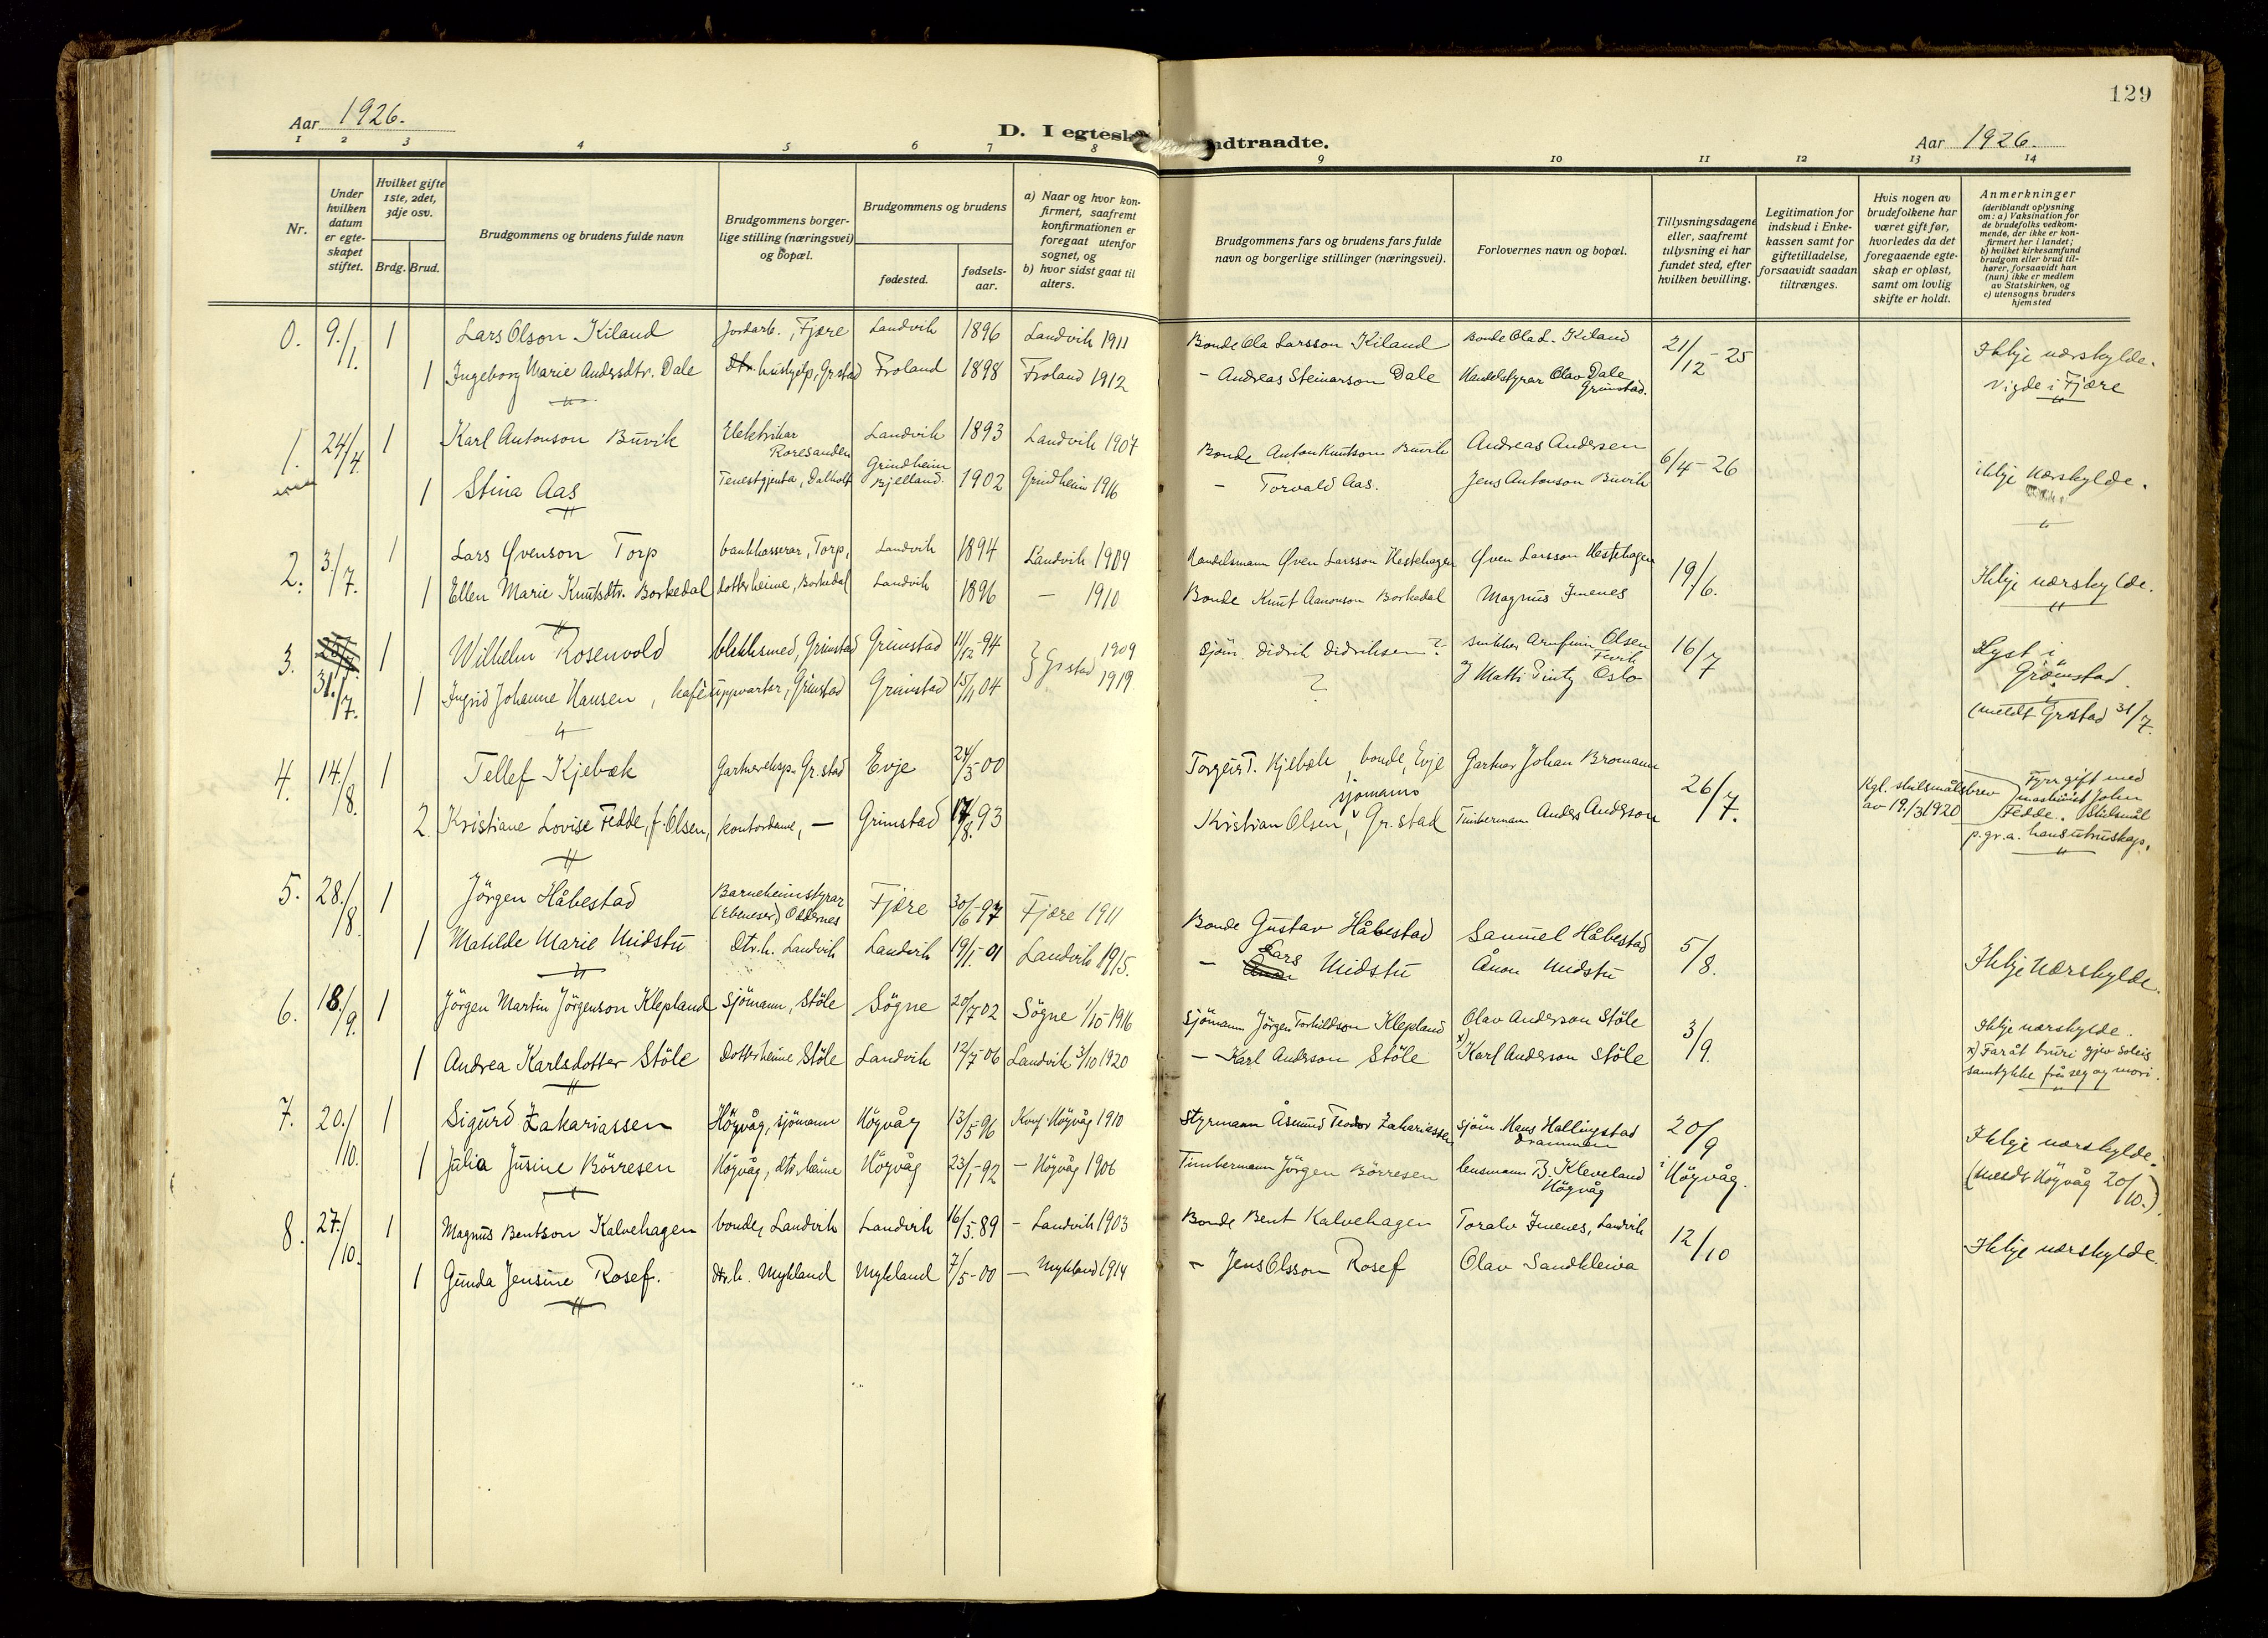 129
Aar 1926.
D. I egtesk
ndtraadte.
Aar 1926.
1 2 3 4 5 6 7 8 9 10 11 12 13 14
Nr.
Under hvilken datum er egte- skapet stiftet.
Hvilket gifte 1ste, 2det, 3dje osv.
Brdg. Brud.
Brudgommens og brudens fulde navn
Brudgommens borger- lige stilling (næringsvei) og bopæl.
Brudgommens og brudens
fødested.
fødsels- aar.
a) Naar og hvor kon- firmert, saafremt konfirmationen er foregaat utenfor sognet, og
b) hvor sidst gaat til alters.
Brudgommens fars og brudens fars fulde navn og borgerlige stillinger (næringsvei).
Forlovernes navn og bopæl.
Tillysningsdagene eller, saafremt tillysning ei har fundet sted, efter hvilken bevilling.
Legitimation for indskud i Enke- kassen samt for giftetilladelse, forsaavidt saadan tiltrænges.
Hvis nogen av brudefolkene har været gift før, hvorledes da det foregaaende egte- skap er opløst, samt om lovlig skifte er holdt.
Anmerkninger (deriblandt oplysning om: a) Vaksination for de brudefolks vedkom- mende, der ikke er kon- firmert her i landet; b) hvilket kirkesamfund brudgom eller brud til- hører, forsaavidt han (hun) ikke er medlem av Statskirken, og c) utensogns bruders hjemsted
0. 9./1. 1 Lars Olson Kiland Jordarb., Fjære Landvik 1896 Landvik 1911 Bonde Ola Larsson Kiland Bonde Olad. Kiland 21/12-25 Ikkje nærskylde.
1 Ingeborg Marie Andersdtr. Dale hushjelp, Gr.stad Froland 1898 Froland 1912 - Andreas Steinarson Dale Handelstyrar Olav Dale Grimstad. Vigde i Fjære
1. 24/4. 1 Karl Antonson Buvik Elektrikar Roresanden Landvik 1893 Landvik 1907 Bonde Anton Knutson Buvik Andreas Andersen 6/4-26 ikkje nærskylde.
1 Stina Aas Tenestgjenta, Dalholt Grindheim Bjelland 1902 Grindheim 1916 - Torvald Aas. Jens Antonson Buvik
2. 3./7. 1 Lars Øvenson Torp bankkasserar, Torp, Landvik 1894 Landvik 1909 Handelsmann Øven Larsson Hestehagen Øven Larsson Hestehagen 19/6. Ikkje nærskylde.
1 Ellen Marie Knutsdtr. Borkedal dotter heime, Borkedal Landvik 1896 - 1910 Bonde Knut Aanonson Borkedal Magnus Imenes
3. 31./7. 1 Wilhelm Rosenvold blekksmed, Grimstad Grimstad 11/12-94 } Gr.stad 1909 Sjöm. Didrik Didriksen? snikker Arnfinn Olsen Fevik 16/7 Lyst i Grimstad.
1 Ingrid Johanne Hansen, kafeuppvartar, Grimstad Grimstad 15/11 04 1919 ? J Matti Pintz Oslo (meldt Gr.stad 31/7.
4. 14./8. 1 Tellef Kjebæk Gartnereksp. Gr.stad Evje 24/3-00 Torgeir T. Kjebæk, bonde, Evje Gartner Johan Bromann 26/7. Kgl. skilsmålsbrev av 19/3 1920 Fyrr gift med maskinist John Fedde. Skilsmål p.gr.a. hans utruskap.
2. Kristiane Lovise Fedde, f. Olsen, kontordame, - Grimstad 17/8. 93 Kristian Olsen, sjömann Gr.stad Timbermann Anders Anderson
5. 28./8. 1 Jörgen Håbestad Barneheimstyrar (Ebeneser) Oddernes Fjære 30/6-97 Fjære 1911 Bonde Gustav Håbestad Samuel Håbestad 5/8. Ikkje nærskylde.
1 Matilde Marie Midstu Dtr.h. Landvik Landvik 19/1-01 Landvik 1915. - Lars Midstu Ånon Midstu
6. 18./9. 1 Jörgen Martin Jörgenson Klepland Sjömann, Støle Søgne 20/7 02 Søgne 1/10-1916 Sjömann Jörgen Torkildson Klepland Olav Anderson Støle 3/9. Ikkje nærskylde.
1 Andrea Karlsdotter Støle Dotter heime Støle Landvik 12/7-06 Landvik 3/10 1920 - Karl Anderson Støle x) Karl Anderson Støle x) Far åt bruri gjev soleis samtykke frå seg og mori.
7. 20./10. 1 Sigurd Zakariassen Högvåg, sjömann Högvåg 13/5-96 Konf. Högvåg 1910 Styrmann Åsmund Teodor Zakariassen Sjöm. Hans Hallingstad Drammen 20/9 i Högvåg. Ikkje nærskylde.
1 Julia Jusine Börresen Högvåg, dtr. heime Högvåg 23/1-92 - Högvåg 1906 Timbermann Jörgen Börresen lensmann B. Kleveland Högvåg (meldt Högvåg 20/10.).
8. 27./10. 1 Magnus Bentson Kalvehagen bonde, Landvik Landvik 16/3.89 - Landvik 1903 Bonde Bent Kalvehagen Toralv Imenes, Landvik 12/10 Ikkje nærskylde.
1 Gunda Jensine Rosef. dtr.h. Mykland Mykland 7/5-00 - Mykland 1914 - Jens Olsson Rosef Olav Sandkleiva